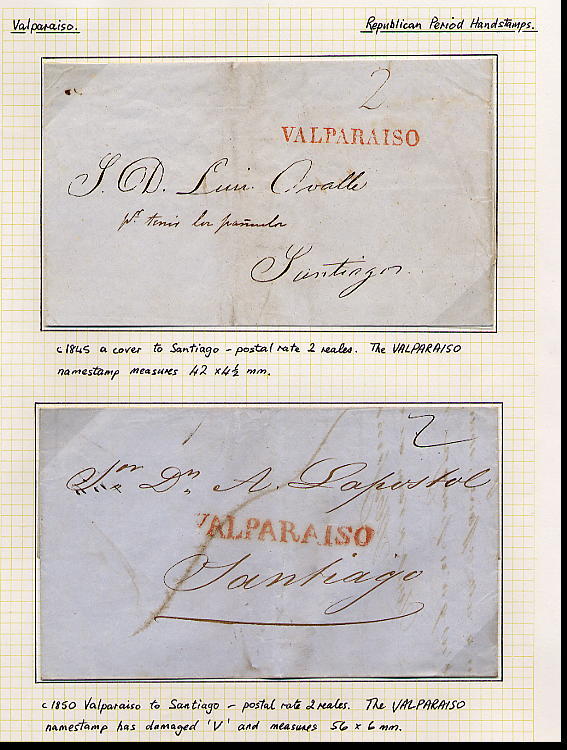 Valparaiso.
Republican Period Handstamps.
2
VALPARAISO
S. D. Luis Ovalle
Santiago
c1845 a cover to Santiago – postal rate 2 reales. The VALPARAISO
namestamp measures 42 x 4½ mm.
2
Sor Dn A. Lapostol
VALPARAISO
Santiago
c1850 Valparaiso to Santiago – postal rate 2 reales. The VALPARAISO
namestamp has damaged 'V' and measures 56 x 6 mm.